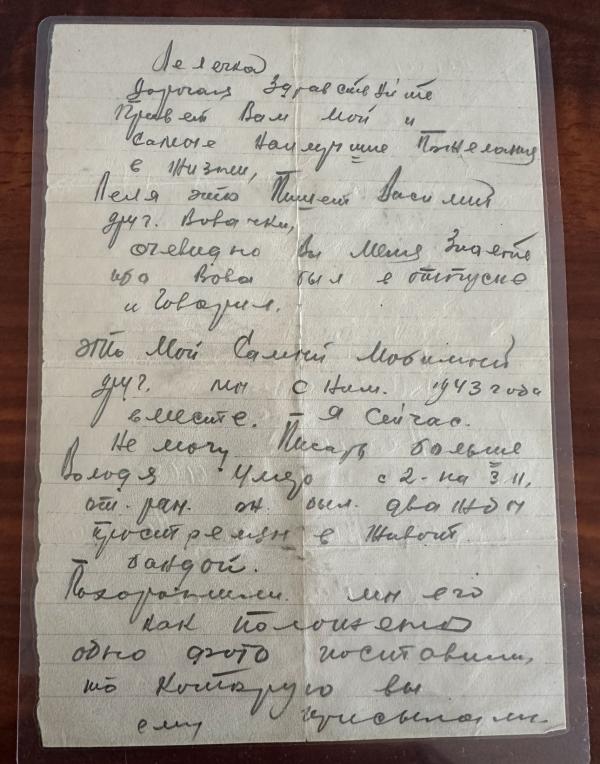 Лелечка
Дорогая Здравствуйте
Привет Вам мой и
самые наилучшие Пожелания
в Жизни,
Леля это Пишет Василий
друг. Вовачки,
очевидно вы меня Знаете
ибо Вова был в отпуске
и говорил.
Это Мой Самый Любимый
друг. мы с Ним. 1943 года
вместе. Я Сейчас.
Не могу Писать больше
Володя Умер с 2- на 3 11,
от. ран. он. был. дважды
прострелян в Живот.
бандой.
Похоронили. мы его
как Положено
одно фото поставили,
то Которую вы
ему присылали.